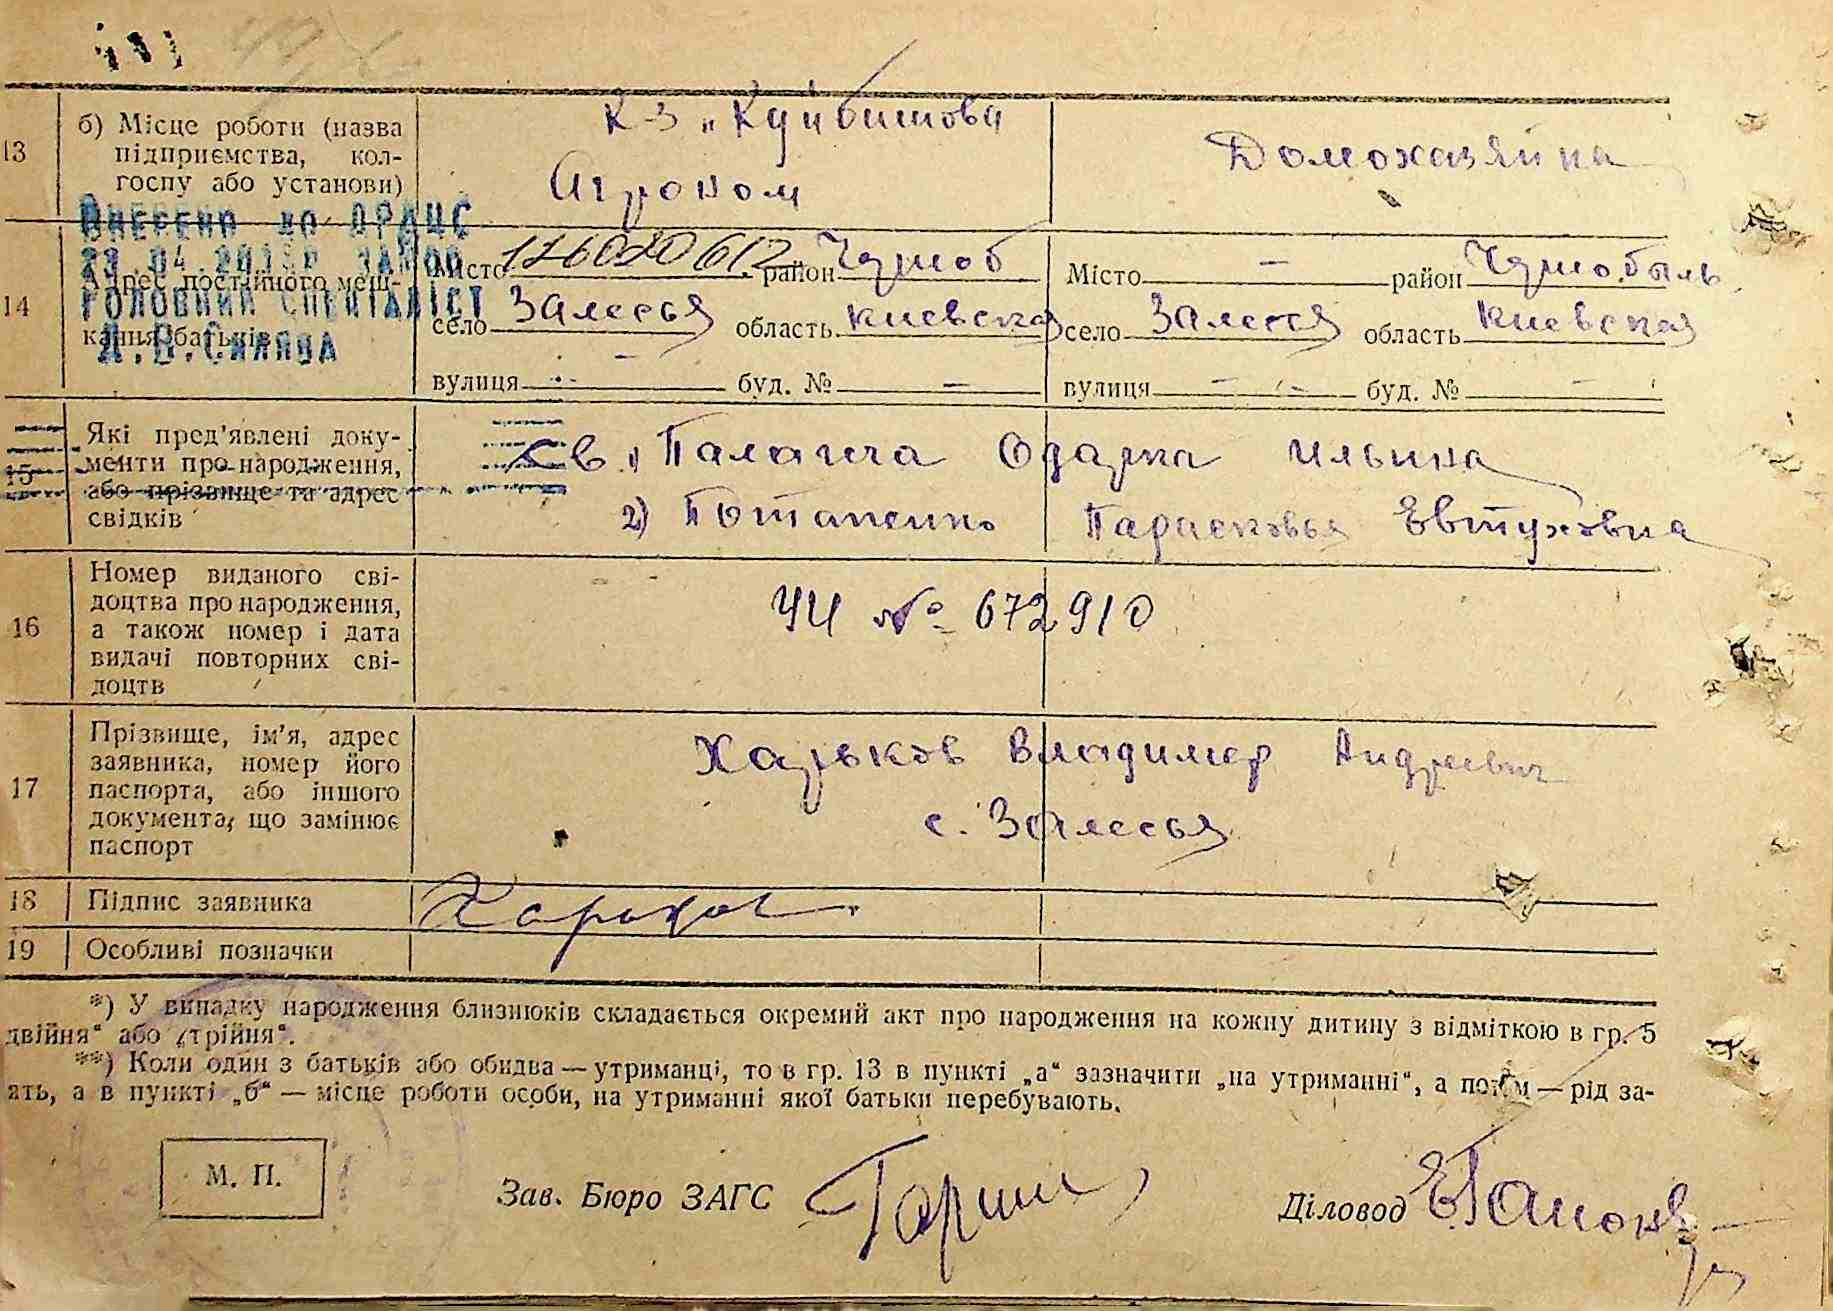 13 б) Місце роботи (назва підприємства, кол-
госпу або установи)
К-з „Куйбишова
Агроном
Домохазяйка
Внесено до ДРАЦС
ГОЛОВНИЙ СПЕЦІАЛІСТ
14 Адрес постійного меш-
кання батьків
Місто 126020612 район Черноб
село Залесья область киевская
вулиця - буд. № -
Місто - район Чернобыль
село Залесся область Киевская
вулиця - буд. № -
15 Які пред'явлені доку-
менти про народження,
або прізвище та адрес
свідків
Св. Одарка Ильина
2) Потапенко Парасковья Евтуховна
16 Номер виданого сві-
доцтва про народження,
а також номер і дата
видачі повторних сві-
доцтв
УЧ № 672910
17 Прізвище, ім'я, адрес
заявника, номер його
паспорта, або іншого
документа, що замінює
паспорт
Харьков Владимер Андреевич
с. Залесья
18 Підпис заявника
Харьков
19 Особливі позначки
*) У випадку народження близнюків складається окремий акт про народження на кожну дитину з відміткою в гр. 5
двійня" або „трійня".
**) Коли один з батьків або обидва — утриманці, то в гр. 13 в пункті „а" зазначити „на утриманні", а потім — рід за-
ять, а в пункті „б" — місце роботи особи, на утриманні якої батьки перебувають.
М. П.
Зав. Бюро ЗАГС
Діловод